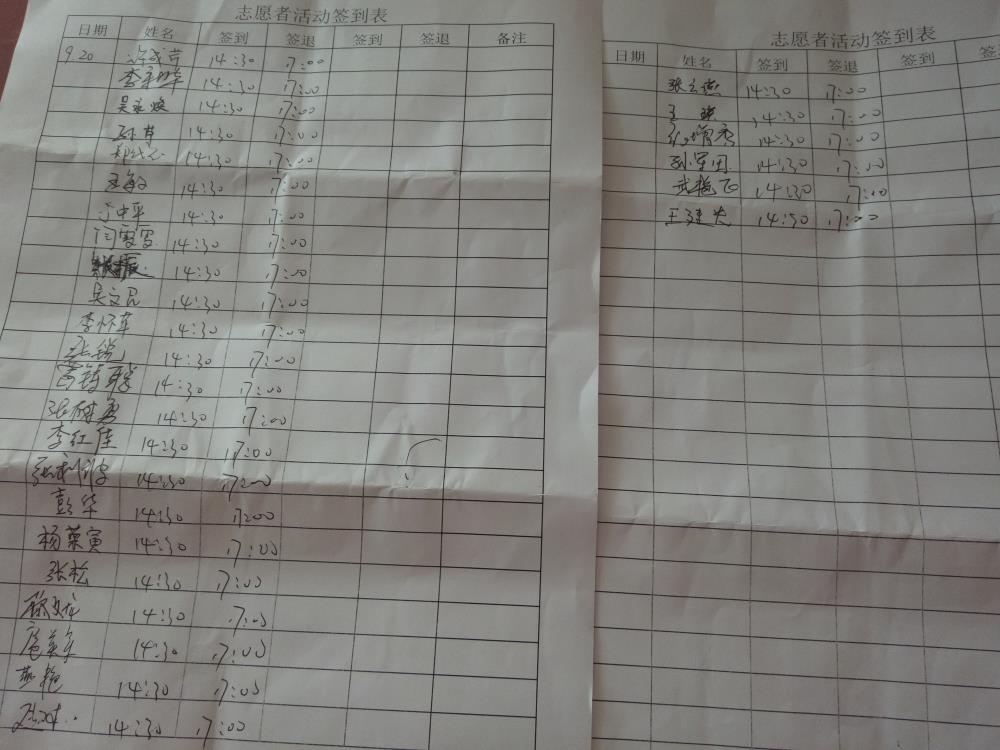 志愿者活动签到表
日期 姓名 签到 签退 签到 签退 备注
9.20 14:30 17:00
李 14:30 17:00
吴永焕 14:30 17:00
孙 14:30 17:00
14:30 17:00
王敏 14:30 17:00
于中平 14:30 17:00
闫雪雪 14:30 17:00
14:30 17:00
吴文民 14:30 17:00
李怀军 14:30 17:00
张锐 14:30 17:00
14:30 17:00
张树勇 14:30 17:00
李红佳 14:30 17:00
张利波 14:30 17:00
彭华 14:30 17:00
杨葉寅 14:30 17:00
张松 14:30 17:00
14:30 17:00
14:30 17:00
燕艳 14:30 17:00
14:30 17:00
志愿者活动签到表
日期 姓名 签到 签退 签到 签
张立德 14:30 17:00
王 14:30 17:00
增秀 14:30 17:00
孙军田 14:30 17:00
武艳飞 14:30 17:00
王建 14:30 17:00